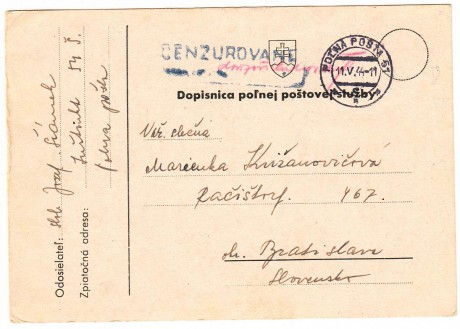 CENZUROVANÉ
POĽNÁ POŠTA 51
11.V.44-11
Dopisnica poľnej poštovej služby
Vež. slečna
Marienka Križanovičová
Račištorf. 467.
ok. Bratislava
Slovensko
Odosielateľ: slob. Jozef
54
Poľná pošta
Zpiatočná adresa: